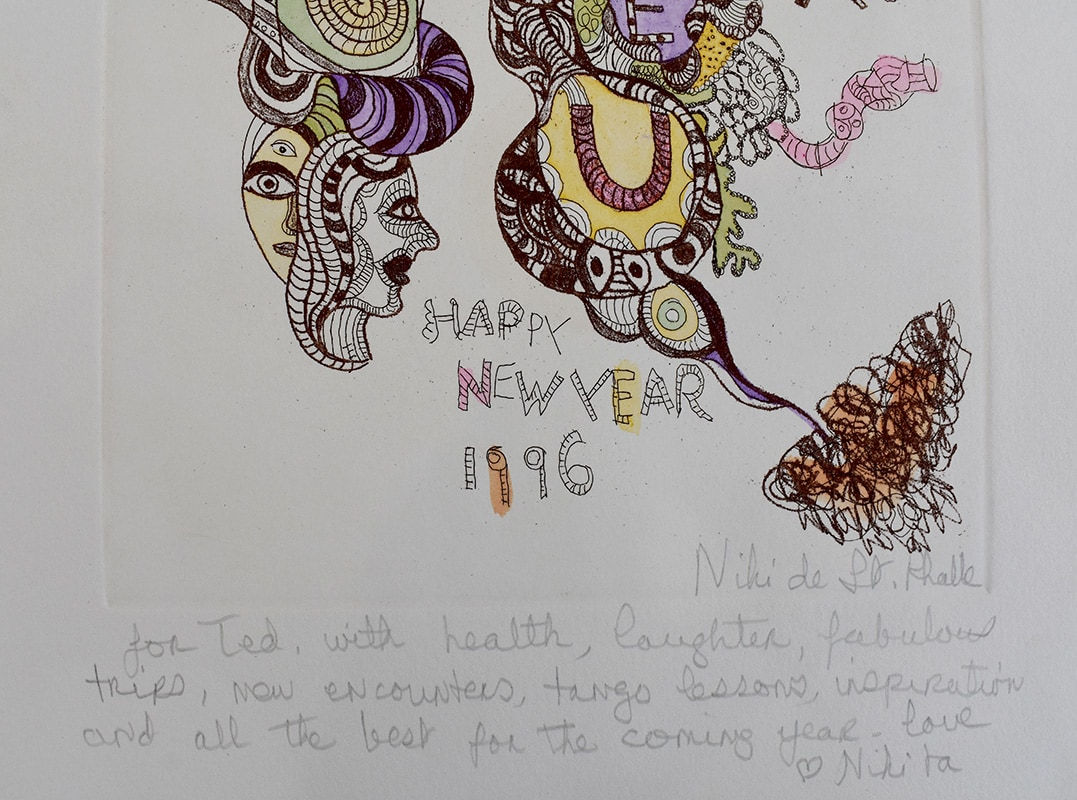 E
U
HAPPY
NEW YEAR
1996
Niki de St. Phalle
for Ted, with health, laughter, fabulous
trips, new encounters, tango lessons, inspiration
and all the best for the coming year. love
♡ Nikita